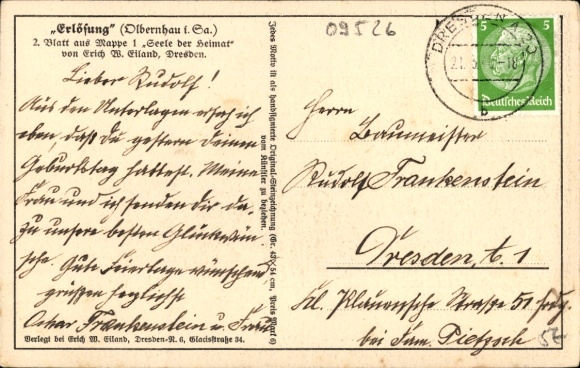 „Erlösung" (Olbernhau i. Sa.)
2. Blatt aus Mappe 1 „Seele der Heimat"
von Erich W. Eiland, Dresden.
Lieber Rudolf!
Aus den Unterlagen ersah ich
eben, daß du gestern deinen
Geburtstag hattest. Meine
Frau und ich senden dir da-
zu unsere besten Glückwün-
sche. Gute Feiertage wünschend
grüssen herzlichst
Oskar Frankenstein u. Frau
Verlegt bei Erich W. Eiland, Dresden-N. 6, Glacisstraße 34.
Jedes Motiv ist als handsignierte Original-Steinzeichnung (Gr. 43×54 cm, Preis Mark 6)
vom Künstler zu beziehen.
09526
DRESDEN A 20
21.3. -18
b
5 5
Deutsches Reich
Herrn
Baumeister
Rudolf Frankenstein
Dresden, A. 1
Kl. Plauensche Straße 51
bei Fam. Pietzsch